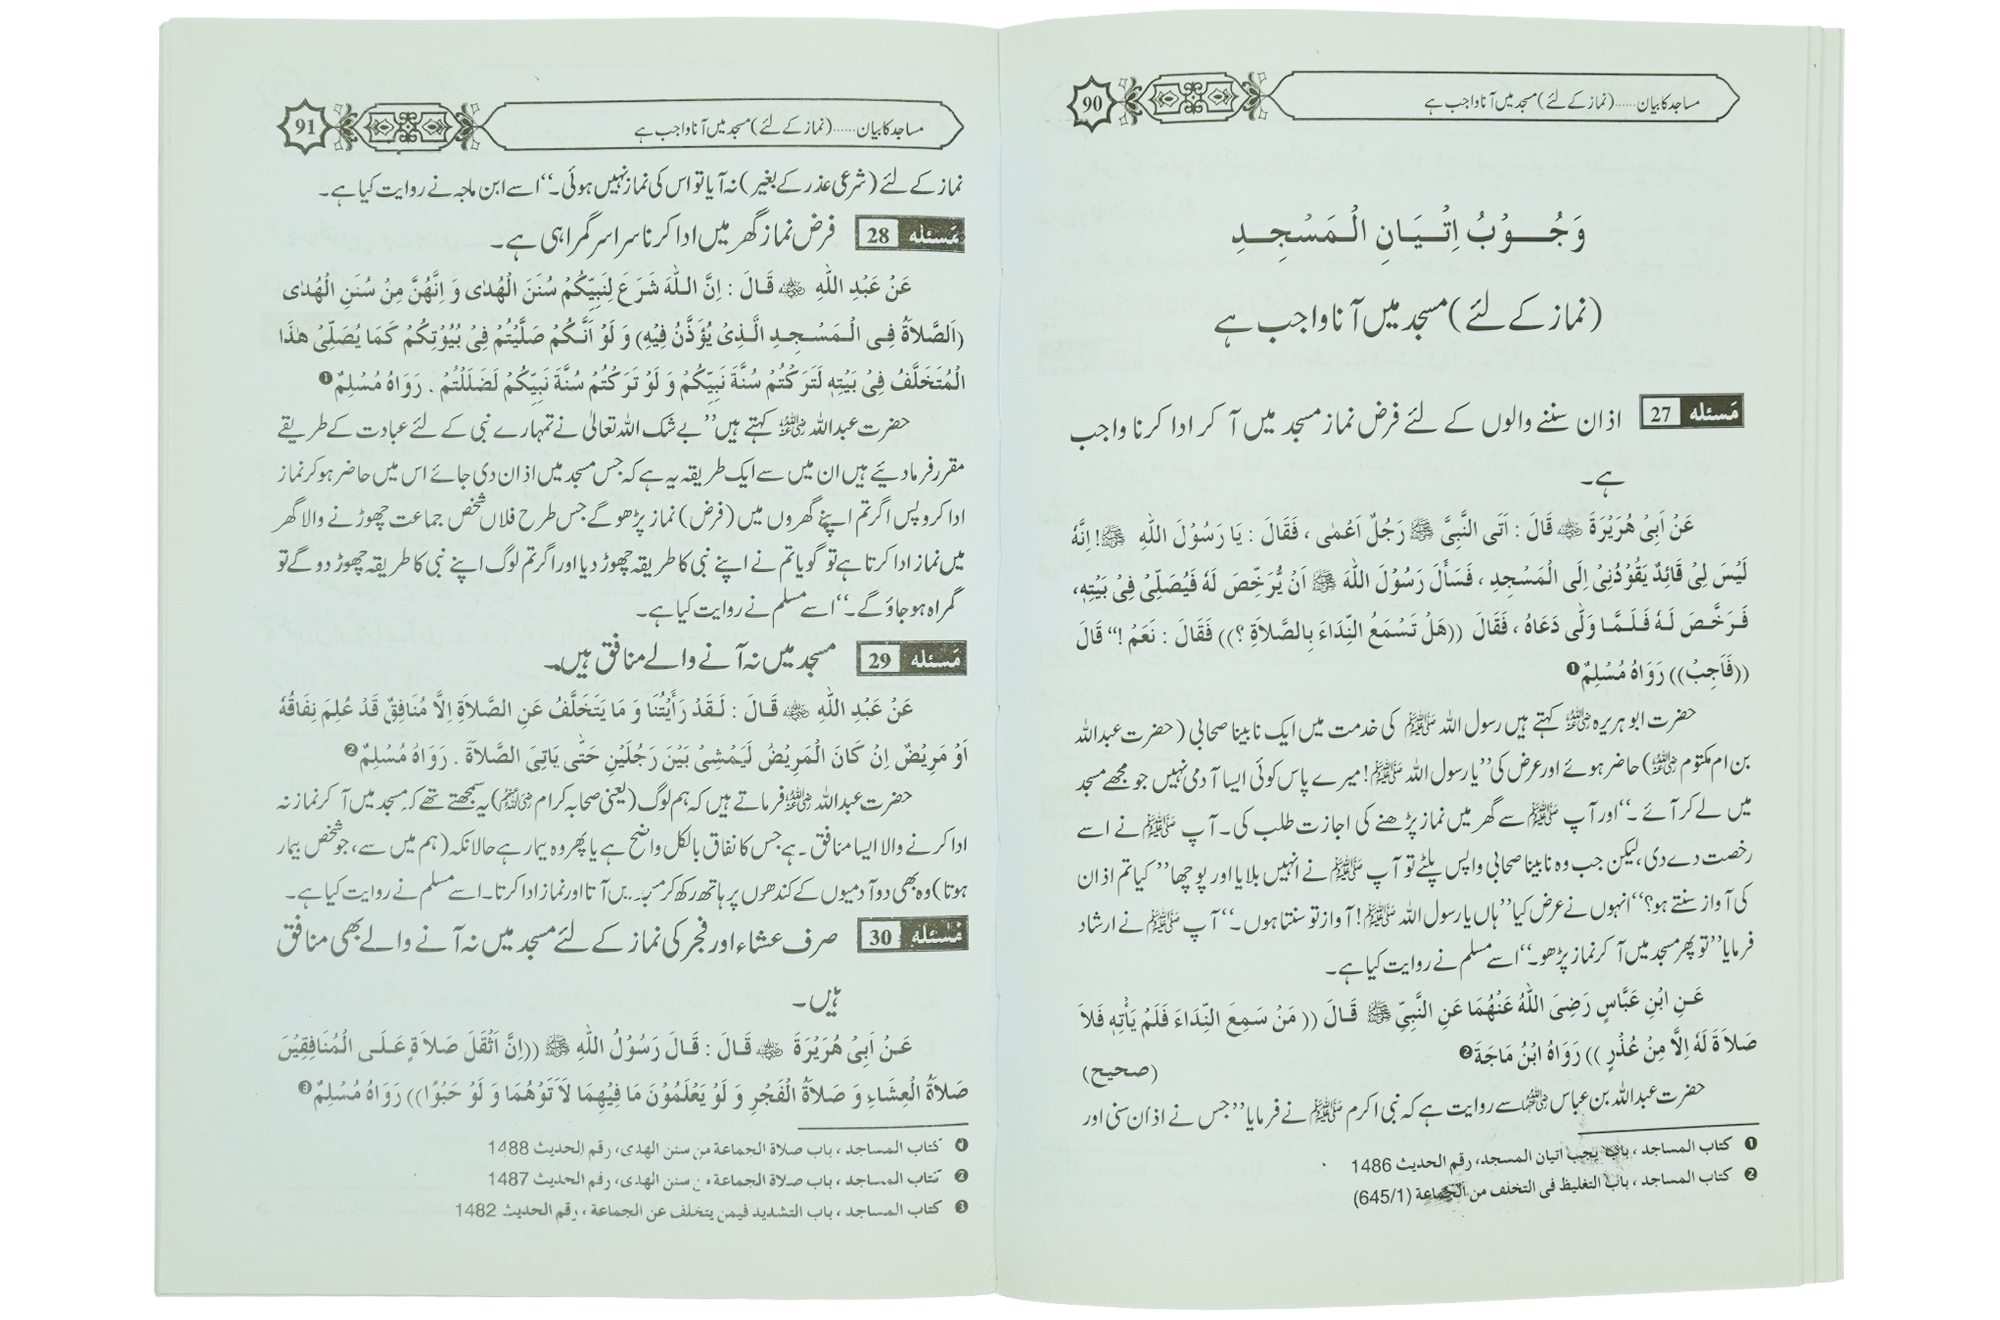 مساجد کا بیان......(نماز کے لئے) مسجد میں آنا واجب ہے
90
وَجُوْبُ اِتْيَانِ الْمَسْجِدِ
(نماز کے لئے) مسجد میں آنا واجب ہے
مَسئله 27 اذان سننے والوں کے لئے فرض نماز مسجد میں آ کر ادا کرنا واجب
ہے۔
عَنْ اَبِیْ هُرَيْرَةَ ﷺ قَالَ : اَتَی النَّبِیَّ ﷺ رَجُلٌ اَعْمٰی ، فَقَالَ : يَا رَسُوْلَ اللهِ ﷺ! اِنَّهٗ
لَيْسَ لِیْ قَائِدٌ يَقُوْدُنِیْ اِلَی الْمَسْجِدِ ، فَسَأَلَ رَسُوْلَ اللهَ ﷺ اَنْ يُّرَخِّصَ لَهٗ فَيُصَلِّیْ فِیْ بَيْتِهٖ،
فَرَخَّصَ لَهٗ فَلَمَّا وَلّٰی دَعَاهُ ، فَقَالَ ((هَلْ تَسْمَعُ النِّدَاءَ بِالصَّلاَةِ ؟)) فَقَالَ : نَعَمْ !‘‘ قَالَ
((فَاَجِبْ)) رَوَاهُ مُسْلِمٌ❶
حضرت ابو ہریرہ رضی اللہ عنہ کہتے ہیں رسول اللہ ﷺ کی خدمت میں ایک نابینا صحابی (حضرت عبداللہ
بن ام مکتوم رضی اللہ عنہ) حاضر ہوئے اور عرض کی’’یا رسول اللہ ﷺ! میرے پاس کوئی ایسا آدمی نہیں جو مجھے مسجد
میں لے کر آئے ۔‘‘اور آپ ﷺ سے گھر میں نماز پڑھنے کی اجازت طلب کی۔آپ ﷺ نے اسے
رخصت دے دی،لیکن جب وہ نابینا صحابی واپس پلٹے تو آپ ﷺ نے انہیں بلایا اور پوچھا’’ کیا تم اذان
کی آواز سنتے ہو؟‘‘انہوں نے عرض کیا’’ہاں یا رسول اللہ ﷺ! آواز تو سنتا ہوں۔‘‘آپ ﷺ نے ارشاد
فرمایا’’تو پھر مسجد میں آ کر نماز پڑھو۔‘‘اسے مسلم نے روایت کیا ہے۔
عَنِ ابْنِ عَبَّاسٍ رَضِیَ اللهُ عَنْهُمَا عَنِ النَّبِیِّ ﷺ قَالَ (( مَنْ سَمِعَ النِّدَاءَ فَلَمْ يَأْتِهٖ فَلاَ
صَلاَةَ لَهٗ اِلَّا مِنْ عُذْرٍ )) رَوَاهُ ابْنُ مَاجَةَ❷ (صحیح)
حضرت عبداللہ بن عباس رضی اللہ عنہما سے روایت ہے کہ نبی اکرم ﷺ نے فرمایا’’جس نے اذان سنی اور
❶ کتاب المساجد ، باب یجب اتیان المسجد، رقم الحدیث 1486
❷ کتاب المساجد ، باب التغلیظ فی التخلف من الجماعة (645/1)
مساجد کا بیان......(نماز کے لئے) مسجد میں آنا واجب ہے
91
نماز کے لئے (شرعی عذر کے بغیر) نہ آیا تو اس کی نماز نہیں ہوئی۔‘‘اسے ابن ماجہ نے روایت کیا ہے۔
مَسئله 28 فرض نماز گھر میں ادا کرنا سراسر گمراہی ہے۔
عَنْ عَبْدِ اللهِ قَالَ : اِنَّ اللهَ شَرَعَ لِنَبِيِّكُمْ سُنَنَ الْهُدٰی وَ اِنَّهُنَّ مِنْ سُنَنِ الْهُدٰی
(اَلصَّلاَةُ فِی الْمَسْجِدِ الَّذِیْ يُؤَذَّنُ فِيْهِ) وَ لَوْ اَنَّكُمْ صَلَّيْتُمْ فِیْ بُيُوْتِكُمْ كَمَا يُصَلِّیْ هٰذَا
الْمُتَخَلِّفُ فِیْ بَيْتِهٖ لَتَرَكْتُمْ سُنَّةَ نَبِيِّكُمْ وَ لَوْ تَرَكْتُمْ سُنَّةَ نَبِيِّكُمْ لَضَلَلْتُمْ . رَوَاهُ مُسْلِمٌ❶
حضرت عبداللہ رضی اللہ عنہ کہتے ہیں’’بے شک اللہ تعالیٰ نے تمہارے نبی کے لئے عبادت کے طریقے
مقرر فرما دیئے ہیں ان میں سے ایک طریقہ یہ ہے کہ جس مسجد میں اذان دی جائے اس میں حاضر ہو کر نماز
ادا کرو پس اگر تم اپنے گھروں میں (فرض) نماز پڑھو گے جس طرح فلاں شخص جماعت چھوڑنے والا گھر
میں نماز ادا کرتا ہے تو گویا تم نے اپنے نبی کا طریقہ چھوڑ دیا اور اگر تم لوگ اپنے نبی کا طریقہ چھوڑ دو گے تو
گمراہ ہو جاؤ گے۔‘‘اسے مسلم نے روایت کیا ہے۔
مَسئله 29 مسجد میں نہ آنے والے منافق ہیں۔
عَنْ عَبْدِ اللهِ قَالَ : لَقَدْ رَأَيْتُنَا وَ مَا يَتَخَلَّفُ عَنِ الصَّلاَةِ اِلَّا مُنَافِقٌ قَدْ عُلِمَ نِفَاقُهٗ
اَوْ مَرِيْضٌ اِنْ كَانَ الْمَرِيْضُ لَيَمْشِیْ بَيْنَ رَجُلَيْنِ حَتّٰی يَاتِیَ الصَّلاَةَ . رَوَاهُ مُسْلِمٌ❷
حضرت عبداللہ رضی اللہ عنہ فرماتے ہیں کہ ہم لوگ (یعنی صحابہ کرام رضی اللہ عنہم) یہ سمجھتے تھے کہ مسجد میں آ کر نماز نہ
ادا کرنے والا ایسا منافق ۔ہے جس کا نفاق بالکل واضح ہے یا پھر وہ بیمار ہے حالانکہ (ہم میں سے، جو شخص بیمار
ہوتا) وہ بھی دو آدمیوں کے کندھوں پر ہاتھ رکھ کر آتا اور نماز ادا کرتا۔ اسے مسلم نے روایت کیا ہے۔
مَسئله 30 صرف عشاء اور فجر کی نماز کے لئے مسجد میں نہ آنے والے بھی منافق
ہیں۔
عَنْ اَبِیْ هُرَيْرَةَ قَالَ : قَالَ رَسُوْلُ اللهِ ﷺ ((اِنَّ اَثْقَلَ صَلاَةٍ عَلَی الْمُنَافِقِيْنَ
صَلاَةُ الْعِشَاءِ وَ صَلاَةُ الْفَجْرِ وَ لَوْ يَعْلَمُوْنَ مَا فِيْهِمَا لَاَتَوْهُمَا وَ لَوْ حَبْوًا)) رَوَاهُ مُسْلِمٌ❸
❶ کتاب المساجد ، باب صلاة الجماعة من سنن الهدی، رقم الحدیث 1488
❷ کتاب المساجد ، باب صلاة الجماعة من سنن الهدی، رقم الحدیث 1487
❸ کتاب المساجد ، باب التشدید فیمن یتخلف عن الجماعة ، رقم الحدیث 1482